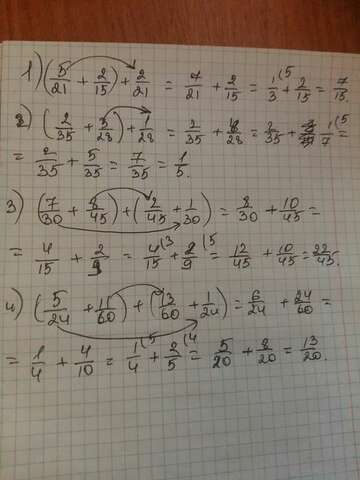 1) (5/21 + 2/15) + 2/21 = 7/21 + 2/15 = 1/3 (5 + 2/15 = 7/15.
2) (2/35 + 3/28) + 1/28 = 2/35 + 4/28 = 2/35 + 1/7 (5 =
= 2/35 + 5/35 = 7/35 = 1/5.
3) (7/30 + 8/45) + (2/45 + 1/30) = 8/30 + 10/45 =
= 4/15 + 2/9 = 4/15 (3 + 2/9 (5 = 12/45 + 10/45 = 22/45.
4) (5/24 + 11/60) + (13/60 + 1/24) = 6/24 + 24/60 =
= 1/4 + 4/10 = 1/4 (5 + 2/5 (4 = 5/20 + 8/20 = 13/20.